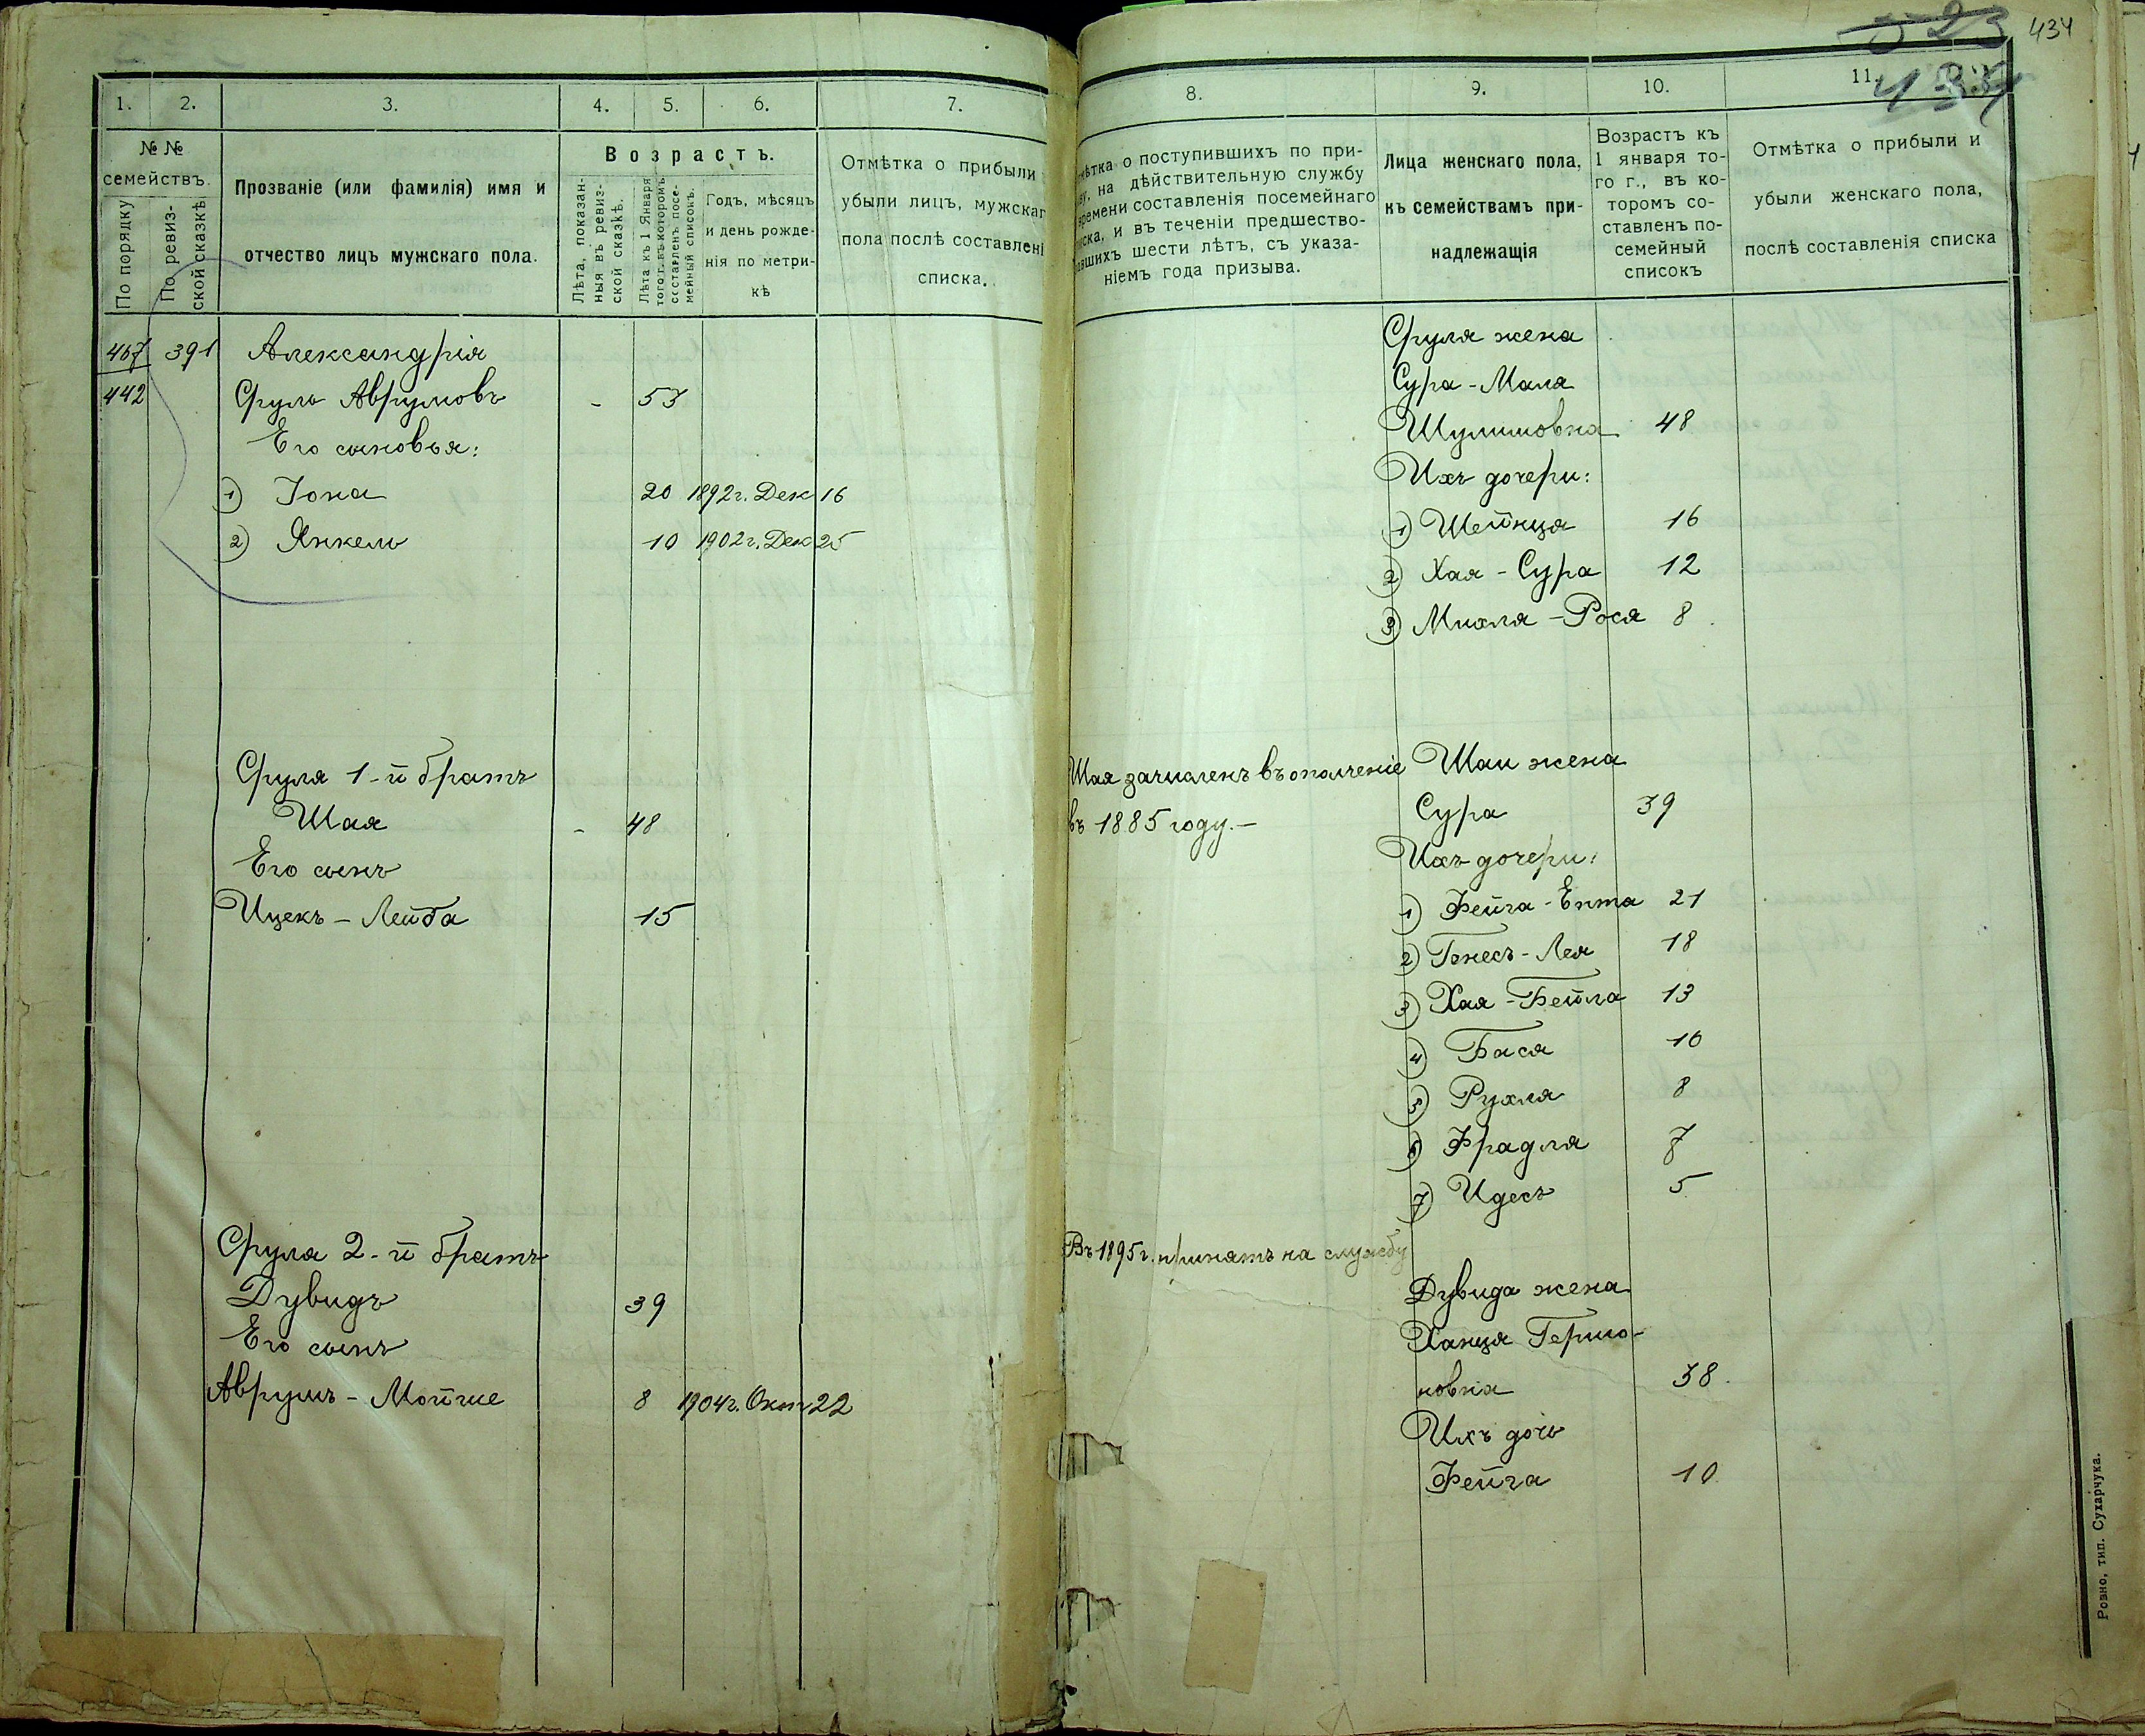 434
523
434
1.
2.
3.
4.
5.
6.
7.
№ №
семействъ.
По порядку
По ревиз-
ской сказкѣ
Прозваніе (или фамилія) имя и
отчество лицъ мужскаго пола.
Возрастъ.
Лѣта, показан-
ныя въ ревиз-
ской сказкѣ.
Лѣта къ 1 Января
того г. въ которомъ
составленъ посе-
мейный списокъ.
Годъ, мѣсяцъ
и день рожде-
нія по метри-
кѣ
Отмѣтка о прибыли
убыли лицъ, мужскаг
пола послѣ составлені
списка.
467 391 Александрія
442 Сруль Аврумовъ - 53
Его сыновья:
1) Іона 20 1892 г. Дек 16
2) Янкель 10 1902 г. Дек 25
Сруля 1-й братъ
Шая - 48
Его сынъ
Ицекъ-Лейба 15
Сруля 2-й братъ
Дувидъ 39
Его сынъ
Аврумъ-Мойше 8 1904 г. Окт 22
8.
9.
10.
11.
мѣтка о поступившихъ по при-
ву, на дѣйствительную службу
времени составленія посемейнаго
писка, и въ теченіи предшество-
вавшихъ шести лѣтъ, съ указа-
ніемъ года призыва.
Лица женскаго пола,
къ семействамъ при-
надлежащія
Возрастъ къ
1 января то-
го г., въ ко-
торомъ со-
ставленъ по-
семейный
списокъ
Отмѣтка о прибыли и
убыли женскаго пола,
послѣ составленія списка
Сруля жена
Сура-Маля
Шулимовна 48
Ихъ дочери:
1) Шейнця 16
2) Хая-Сура 12
3) Михля-Рося 8
Шая зачисленъ въ ополченіе Шаи жена
въ 1885 году.- Сура 39
Ихъ дочери:
1) Фейга-Ента 21
2) Генесъ-Лея 18
3) Хая-Бейла 13
4) Бася 10
5) Рухля 8
6) Фрадля 7
7) Идесъ 5
Въ 1895 г. принятъ на службу
Дувида жена
Ханця Гершо-
новна 38
Ихъ дочь
Фейга 10
Ровно, тип. Сухарчука.